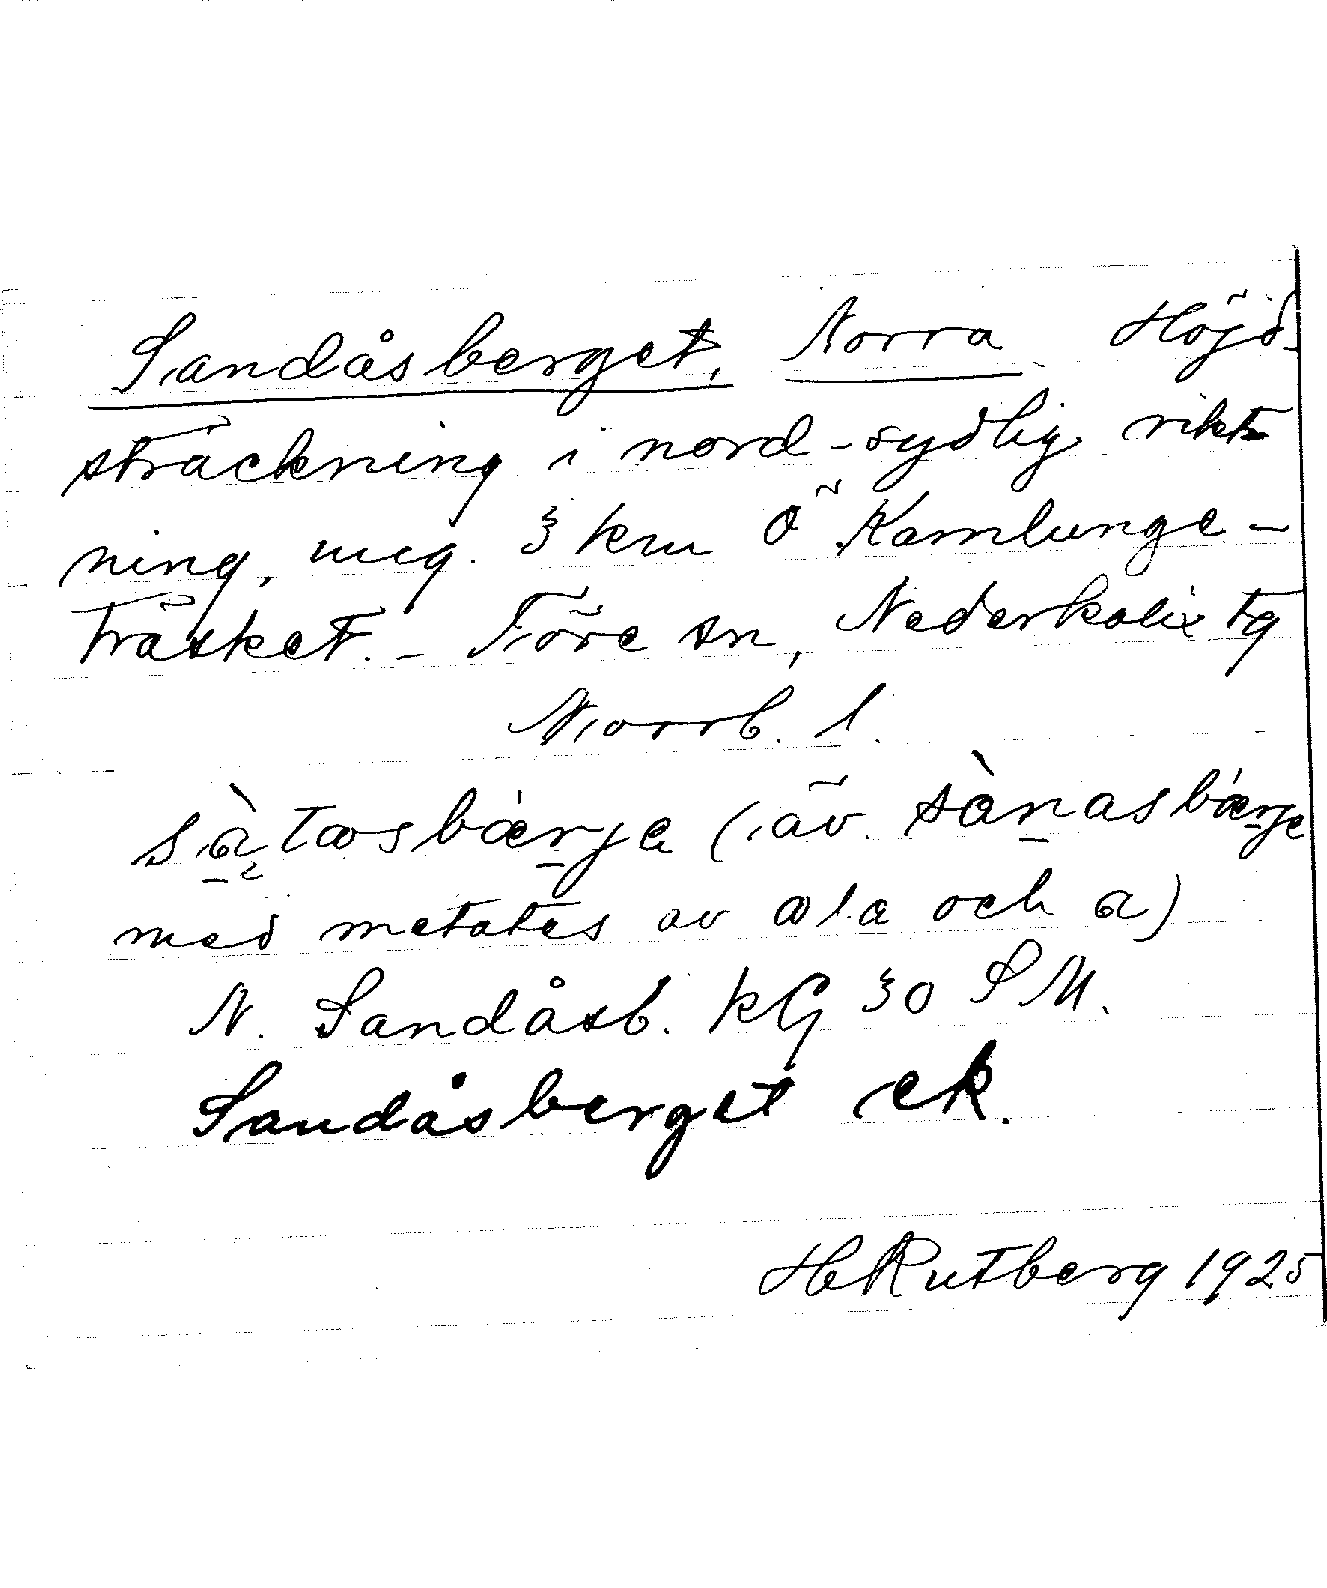 Sandåsberget, Norra Höjd-
sträckning i nord-sydlig rikt-
ning, meg. 3 km Ö Kamlunge-
träsket. - Töre sn, Nederkalix tg
Norrb. l.
(äv.
med metates av och a)
N. Sandåsb. kG 30 SM.
Sandåsberget ek.
H Rutberg 1925